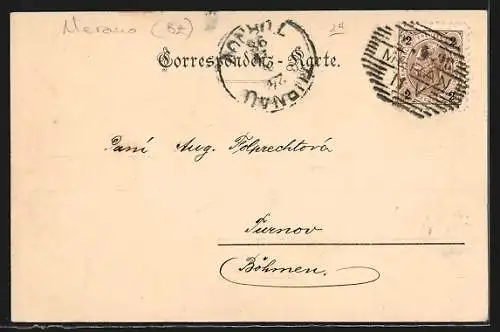 Merano (Bz)
2 2
Correspondenz-Karte.
TURNAU
2 2
Paní Aug. Folprechtová
Turnov
Böhmen.